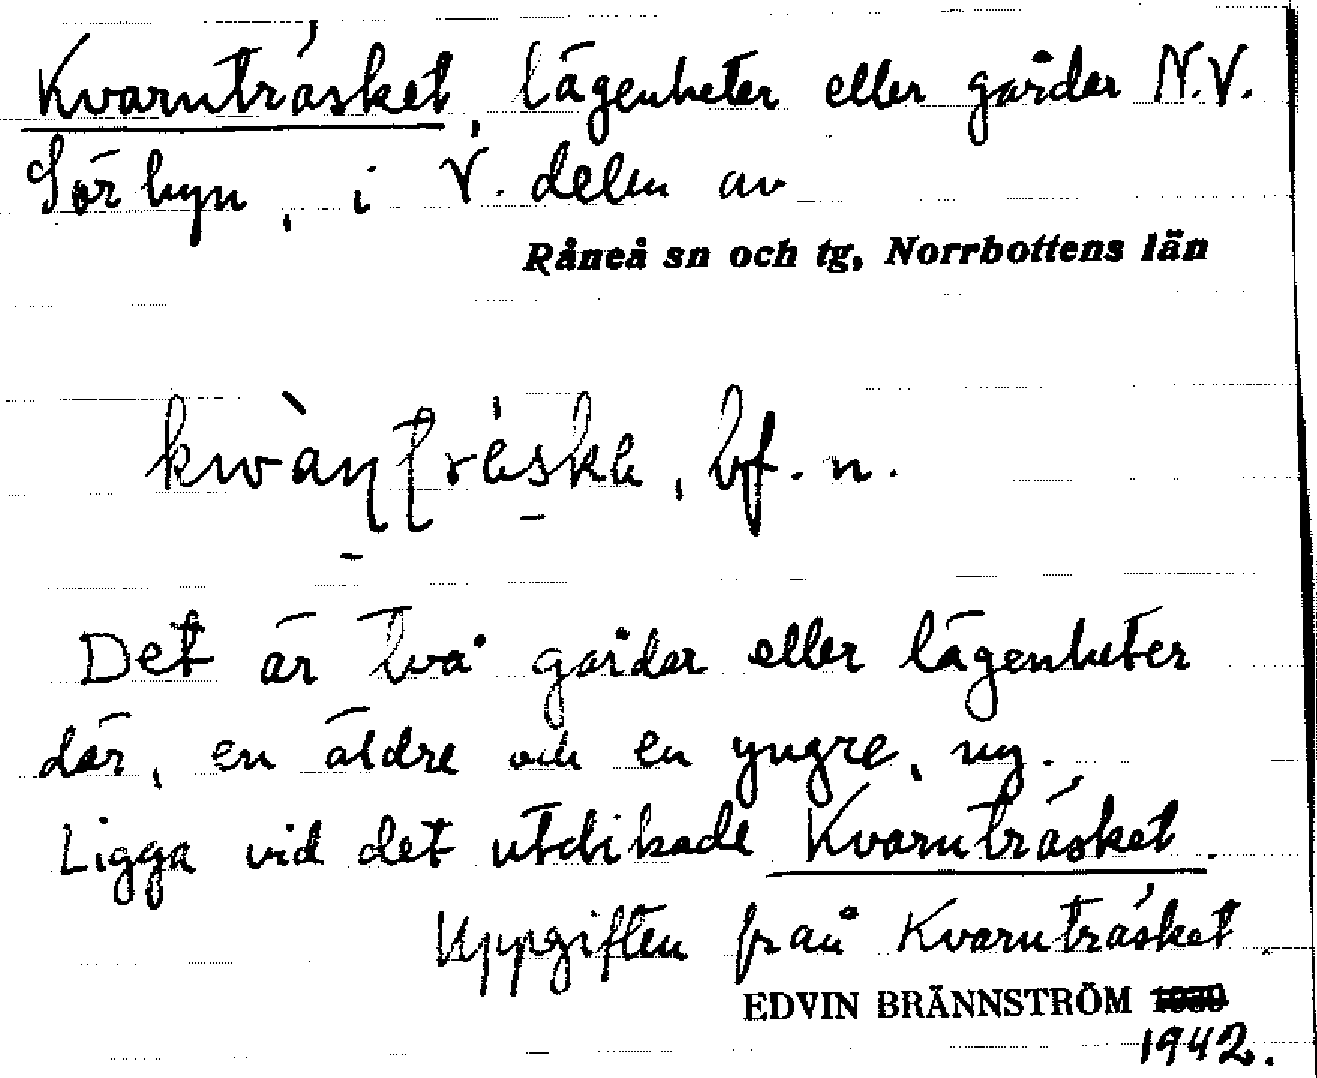 Kvarnträsket, lägenheter eller gårdar N.V.
Sörbyn, i V. delen av
Råneå sn och tg, Norrbottens län
bf. n.
Det är två gårdar eller lägenheter
där, en äldre och en yngre, ny.
Ligga vid det utdikade Kvarnträsket.
Uppgiften från Kvarnträsket.
EDVIN BRÄNNSTRÖM 1930
1942.